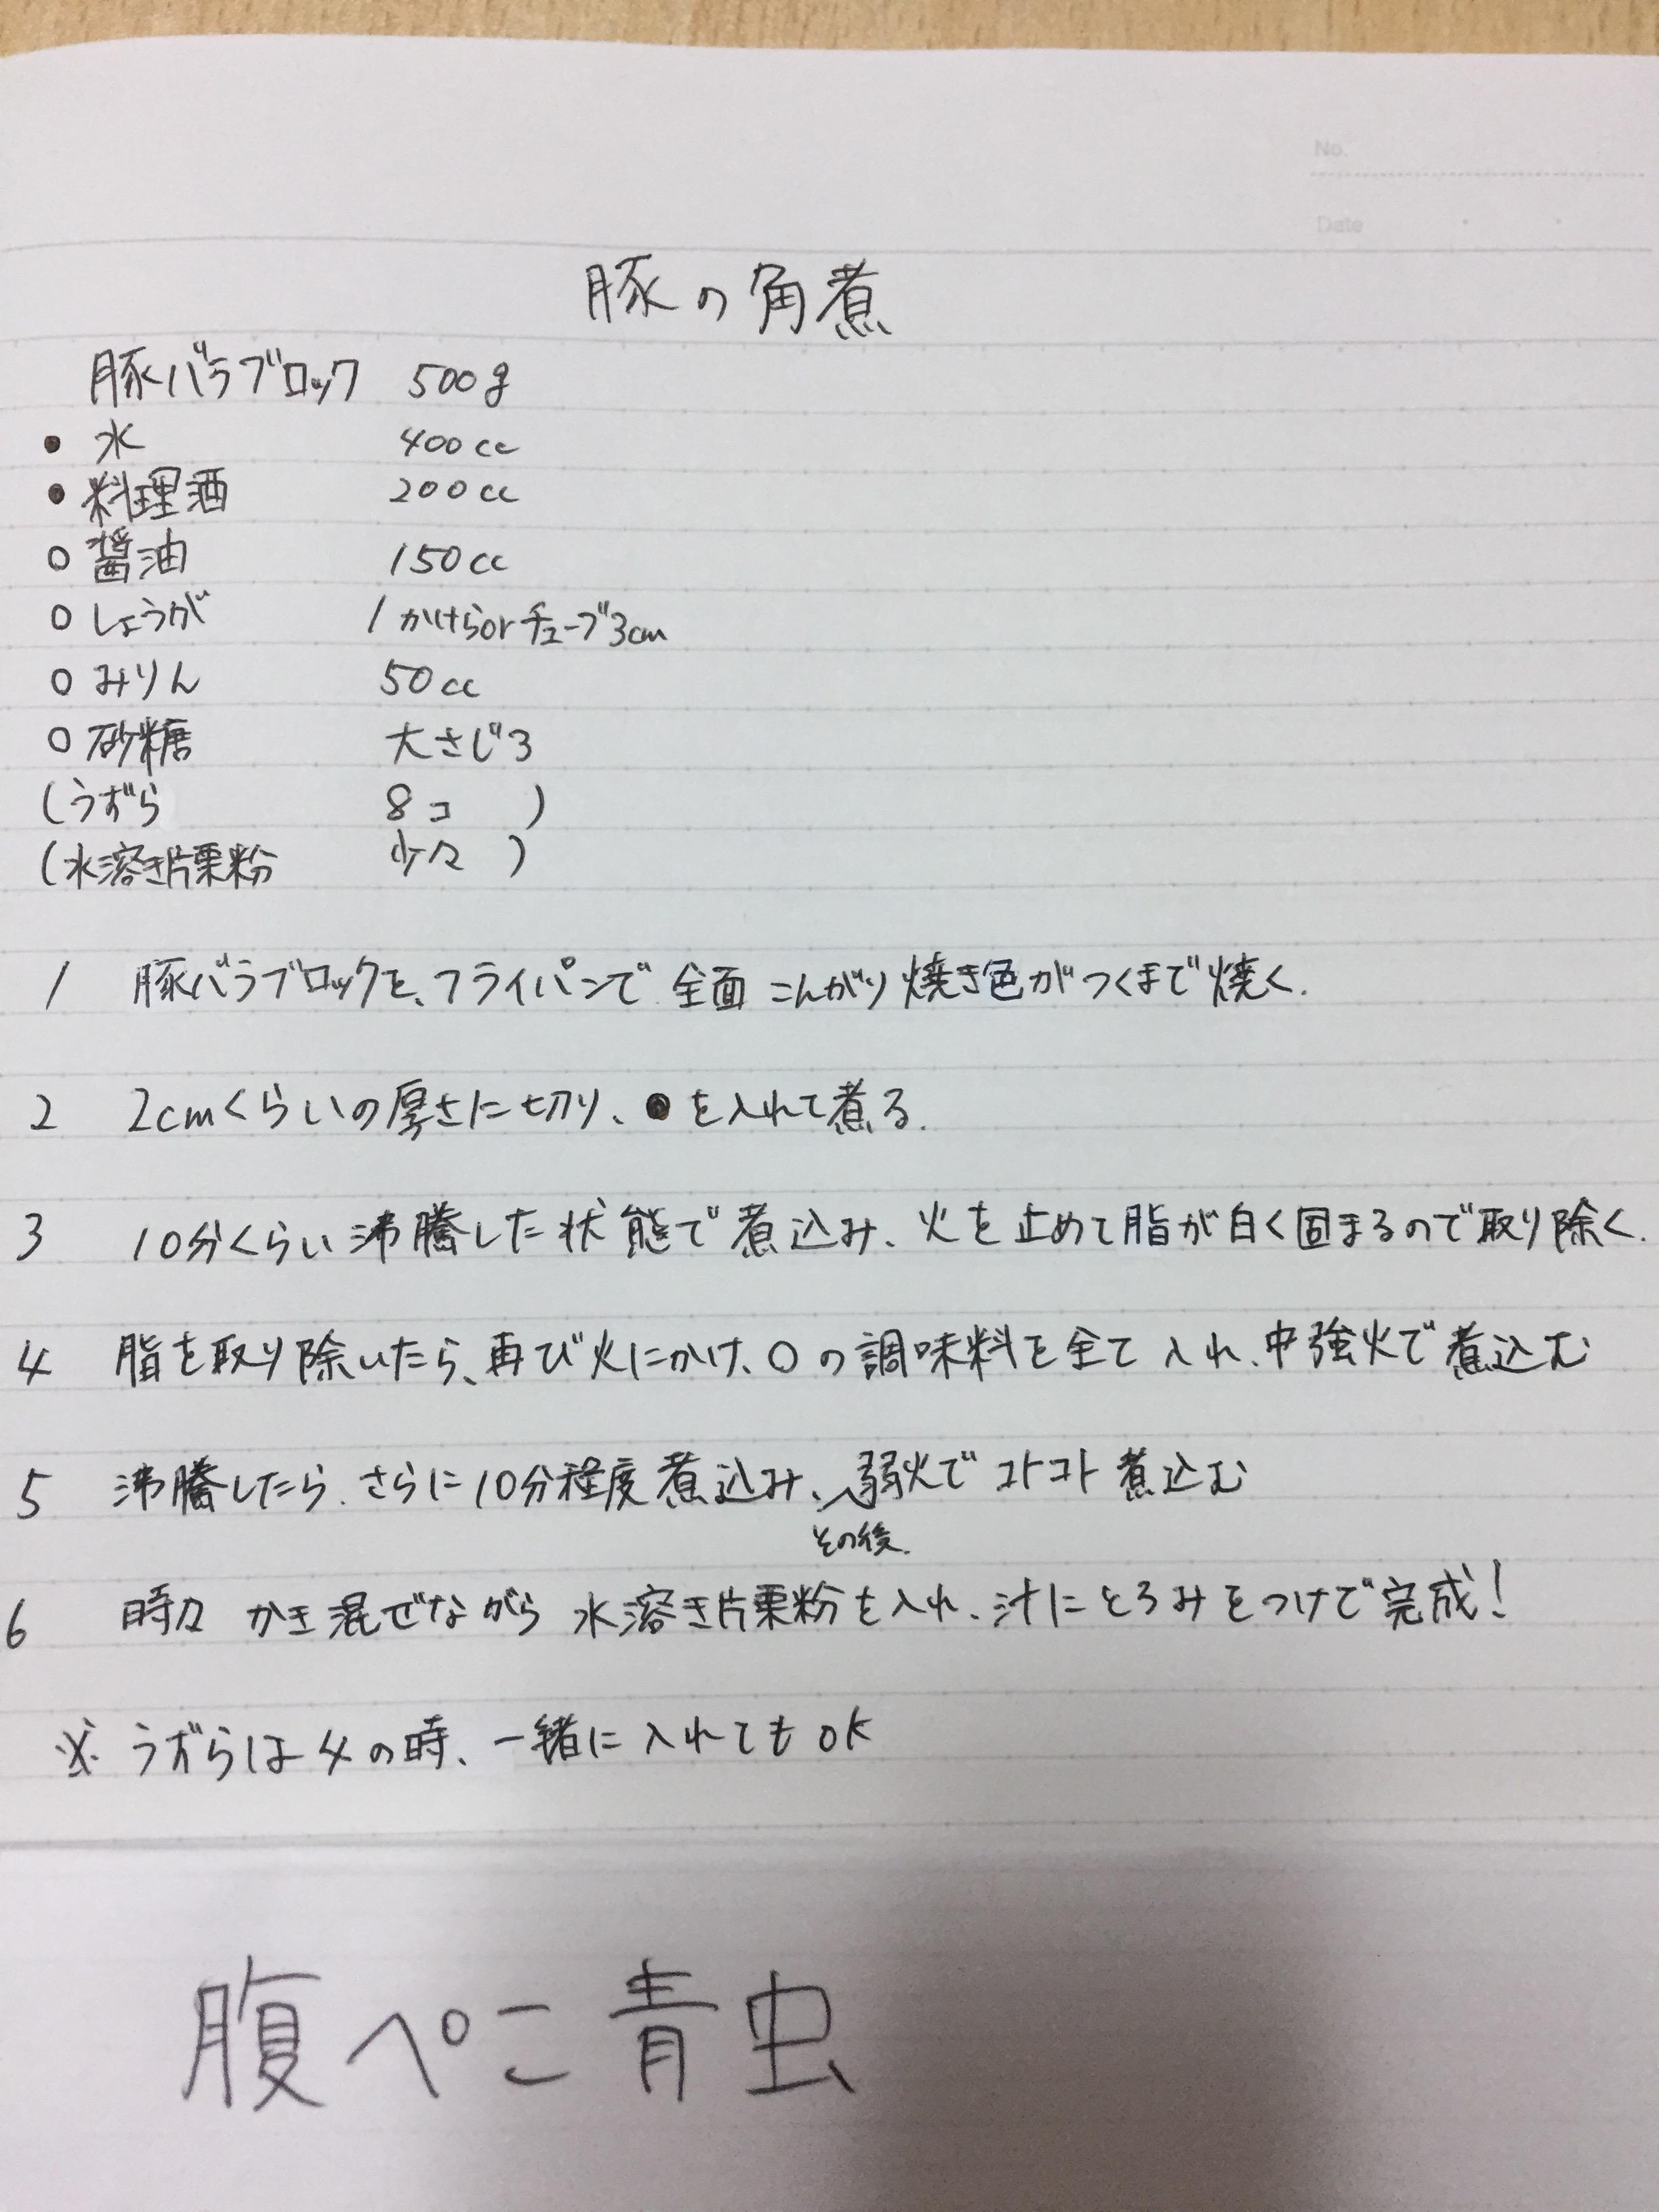 No.
Date
豚の角煮
豚バラブロック 500g
● 水 400cc
● 料理酒 200cc
○ 醤油 150cc
○ しょうが 1かけらorチューブ3cm
○ みりん 50cc
○ 砂糖 大さじ3
(うずら 8コ )
(水溶き片栗粉 少々 )
1 豚バラブロックを、フライパンで全面こんがり焼き色がつくまで焼く.
2 2cmくらいの厚さに切り、●を入れて煮る.
3 10分くらい沸騰した状態で煮込み、火を止めて脂が白く固まるので取り除く.
4 脂を取り除いたら、再び火にかけ、○の調味料を全て入れ、中強火で煮込む
5 沸騰したら、さらに10分程度煮込み、弱火でコトコト煮込む
その後、
6 時々かき混ぜながら水溶き片栗粉を入れ、汁にとろみをつけて完成!
※ うずらは4の時、一緒に入れてもOK
腹ぺこ青虫